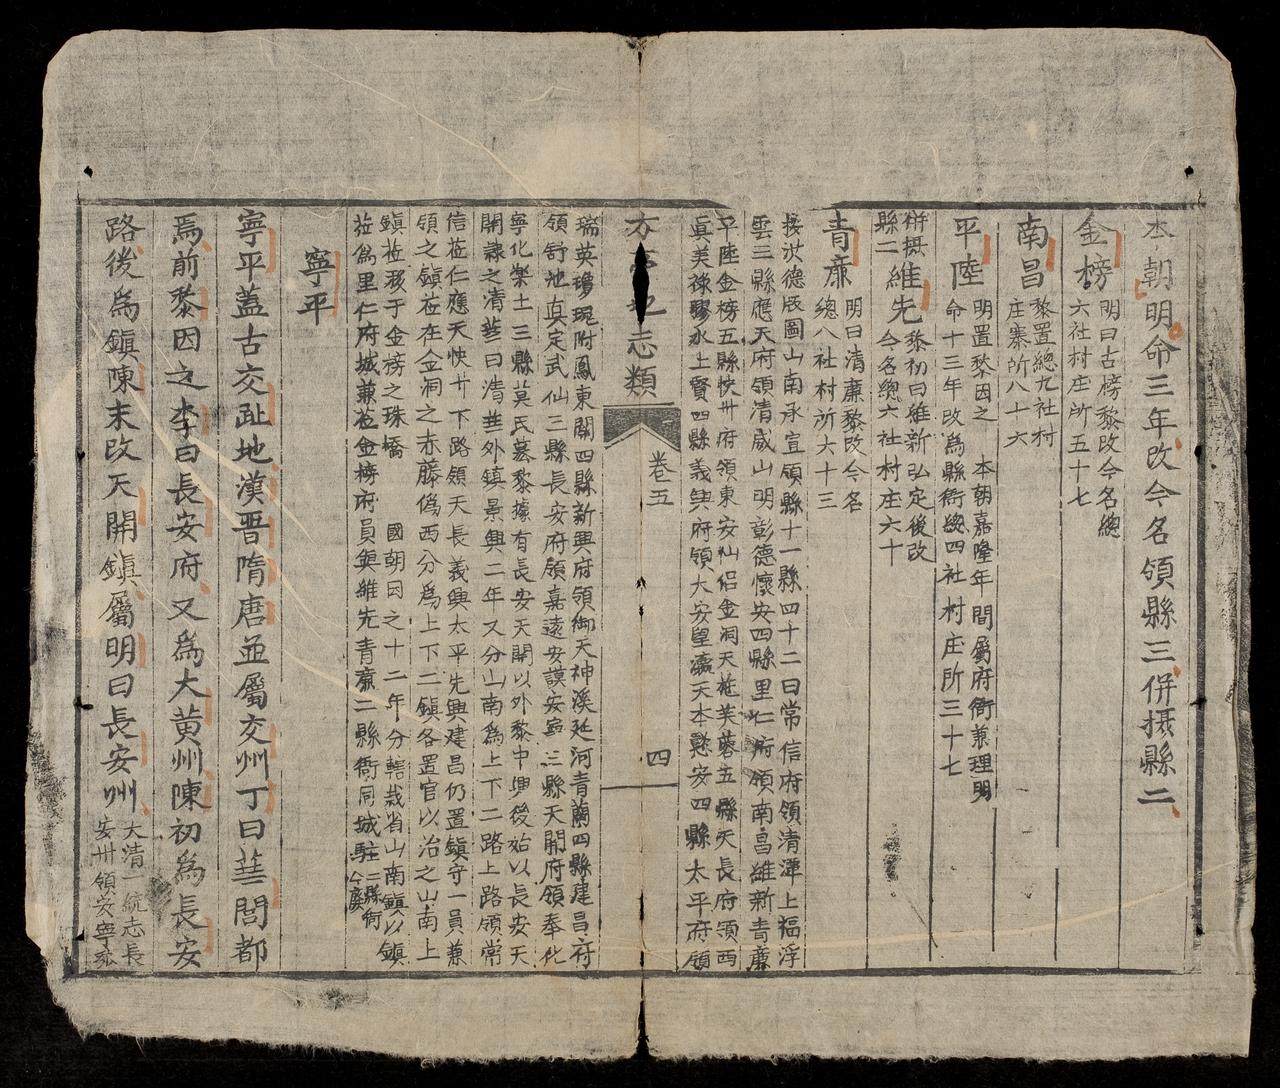 本朝明命三年改今名領縣三併摄縣二
金榜 明曰古榜黎改今名總
六社村庄所五十七
南昌 黎置總九社村
庄寨所八十六
平陸 明置黎因之 本朝嘉隆年間屬府衙兼理明
命十三年改為縣衙總四社村庄所三十七
併摄
縣二 維先 黎初曰維新弘定後改
今名總六社村庄六十
青廉 明曰清廉黎改今名
總八社村所六十三
按洪德版圖山南承宣領縣十一縣四十二曰常信府領清潭上福浮
雲三縣應天府領清威山明彰德懷安四縣里仁府領南昌維新青廉
平陸金榜五縣快州府領東安仙侶金洞天施芙蓉五縣天長府領西
真美祿膠水上賢四縣義興府領大安望瀛天本懿安四縣太平府領
方亭地志類 卷五 四
瑞英瓊琨附鳳東關四縣新興府領御天神溪延河青蘭四縣建昌府
領舒池真定武仙三縣長安府領嘉遠安謨安寧三縣天關府領奉化
寧化樂土三縣莫氏墓黎據有長安天關以外黎中興後始以長安天
關隸之清華曰清華外鎮景興二年又分山南為上下二路上路領常
信莅仁應天快卅下路領天長義興太平先興建昌仍置鎮守一員兼
領之鎮莅在金洞之赤藤偽西分為上下二鎮各置官以治之山南上
鎮莅移于金榜之珠橋 國朝因之十二年分轄裁省山南鎮以鎮
莅為里仁府城兼莅金榜府員與維先青廉二縣衙同城駐 二縣衙
今廢
寧平
寧平蓋古交趾地漢晋隋唐並屬交州丁曰華閭都
焉前黎因之李曰長安府又為大黄州陳初為長安
路後為鎮陳末改天關鎮屬明曰長安州 大清一統志長
安卅領安寧黎